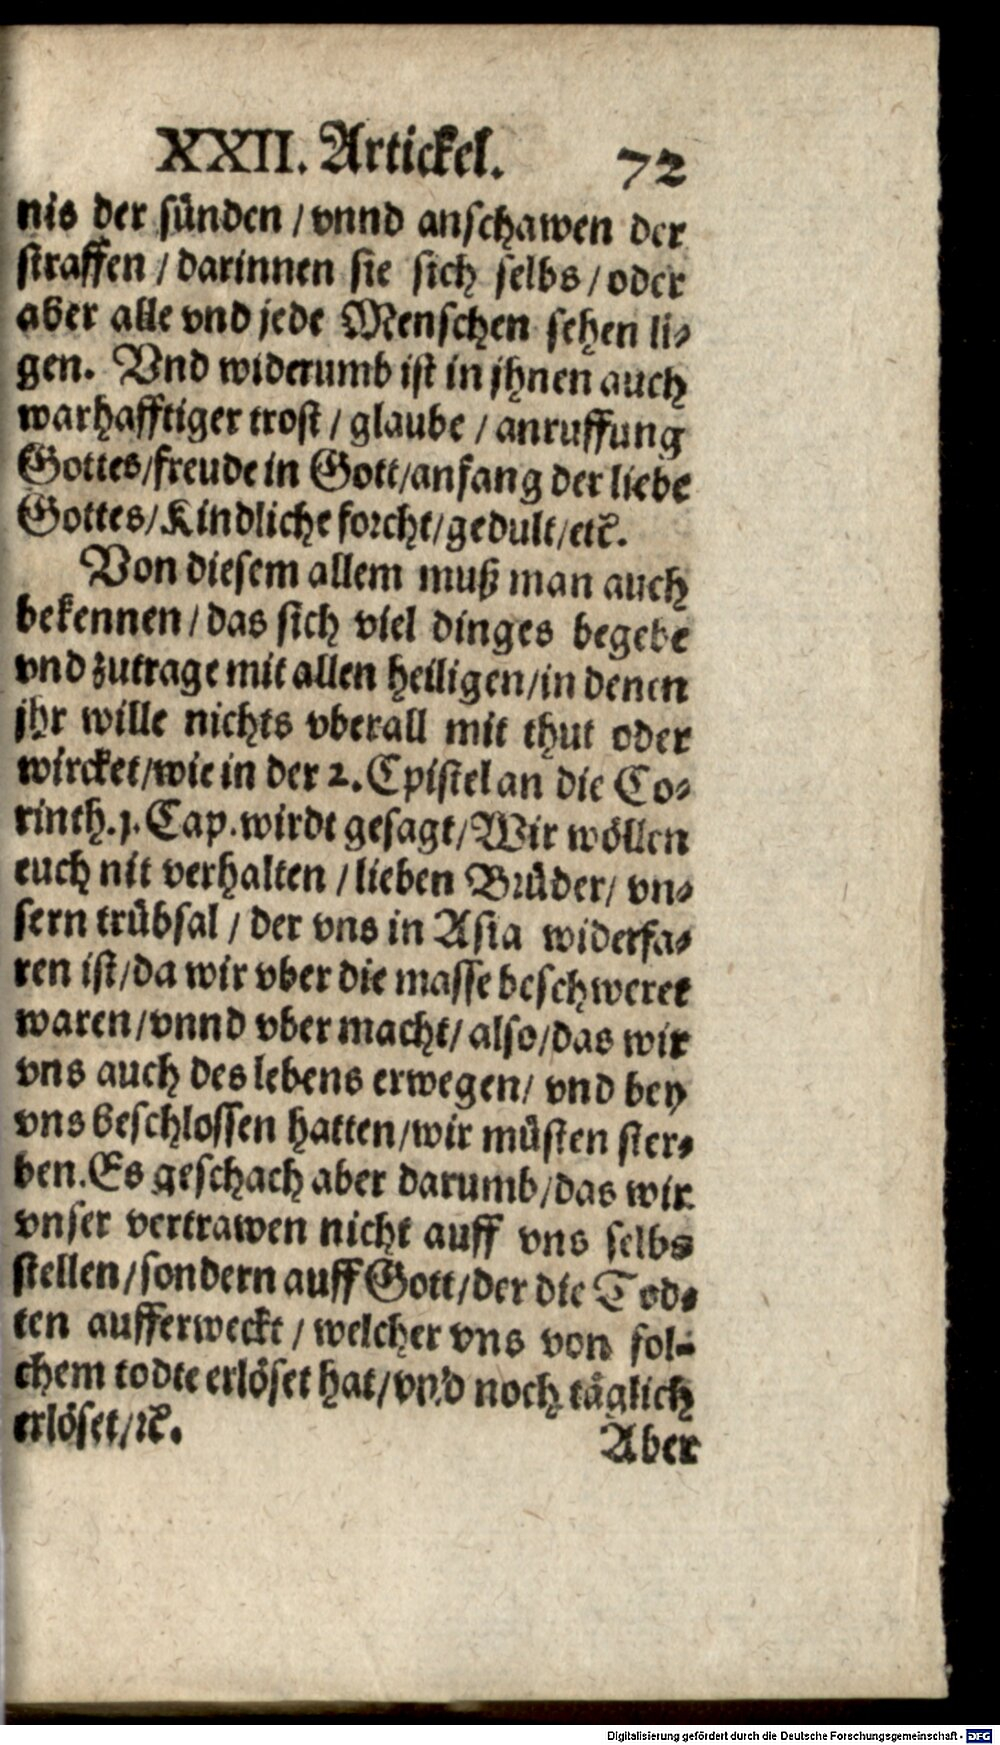 XXII. Artickel. 72
nis der sünden / vnnd anschawen der
straffen / darinnen sie sich selbs / oder
aber alle vnd jede Menschen sehen li-
gen. Vnd widerumb ist in jhnen auch
warhafftiger trost / glaube / anruffung
Gottes/freude in Gott/anfang der liebe
Gottes/Kindliche forcht/gedult/etc.
Von diesem allem muß man auch
bekennen / das sich viel dinges begebe
vnd zutrage mit allen heiligen/in denen
jhr wille nichts vberall mit thut oder
wircket/wie in der 2. Epistel an die Co-
rinth. 1. Cap. wirdt gesagt/Wir wöllen
euch nit verhalten / lieben Brüder/ vn-
sern trübsal / der vns in Asia widerfa-
ren ist/da wir vber die masse beschweret
waren/vnnd vber macht/ also/das wir
vns auch des lebens erwegen/ vnd bey
vns beschlossen hatten/wir müsten ster-
ben. Es geschach aber darumb/das wir
vnser vertrawen nicht auff vns selbs
stellen/sondern auff Gott/der die Tod-
ten aufferweckt / welcher vns von sol-
chem todte erlöset hat/vnd noch täglich
erlöset/etc.
Aber
Digitalisierung gefördert durch die Deutsche Forschungsgemeinschaft - DFG